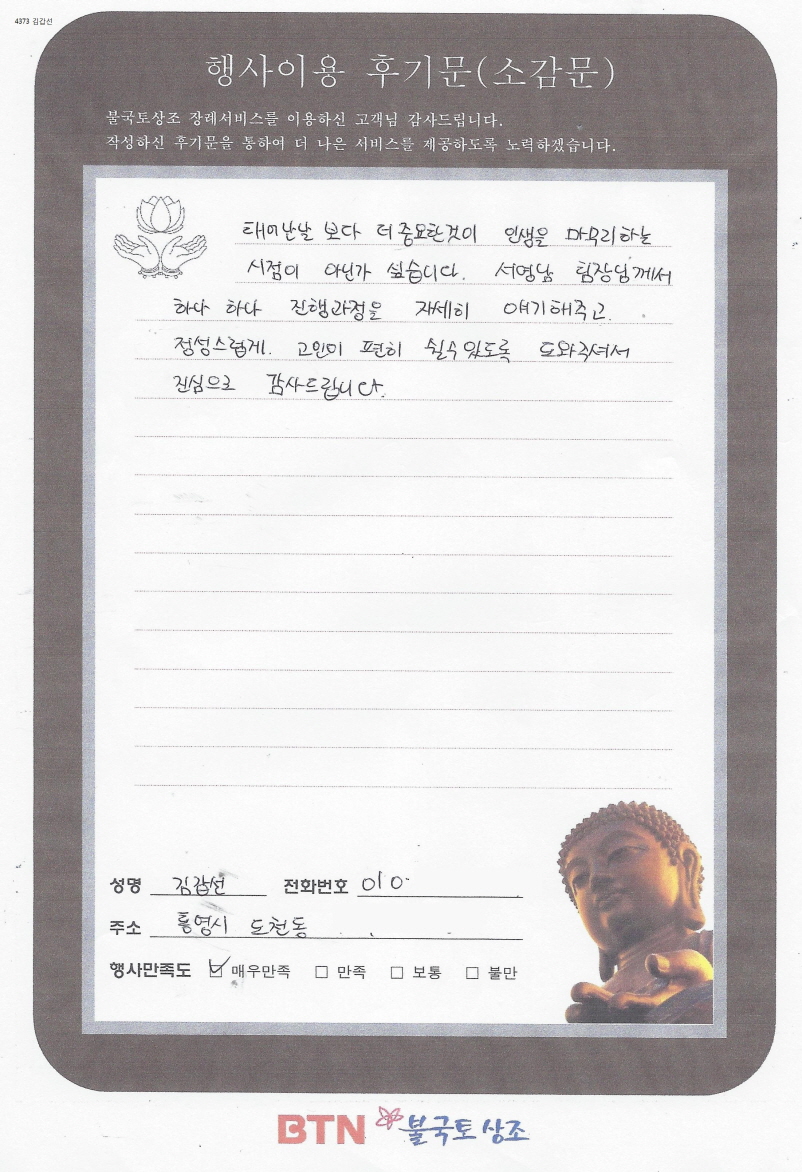 4373 김갑선
행사이용 후기문(소감문)
불국토상조 장례서비스를 이용하신 고객님 감사드립니다.
작성하신 후기문을 통하여 더 나은 서비스를 제공하도록 노력하겠습니다.
태어난날 보다 더 중요한것이 인생을 마무리하는
시점이 아닌가 싶습니다. 서영남 팀장님께서
하나 하나 진행과정을 자세히 얘기해주고.
정성스럽게. 고인이 편히 쉴수있도록 도와주셔서
진심으로 감사드립니다.
성명 김갑선 전화번호 010
주소 통영시 도천동
행사만족도 ☑ 매우만족 □ 만족 □ 보통 □ 불만
BTN 불국토상조